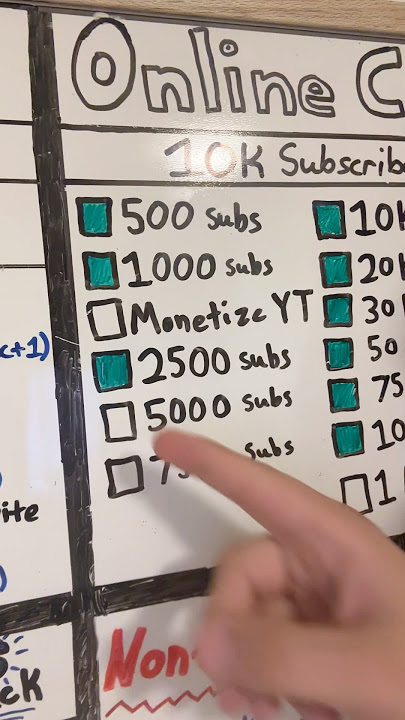 Online C
10K Subscribe
500 subs
1000 subs
Monetize YT
2500 subs
5000 subs
subs
10K
20K
30
50
75
10
1
x+1)
ite
)
ck
Non-